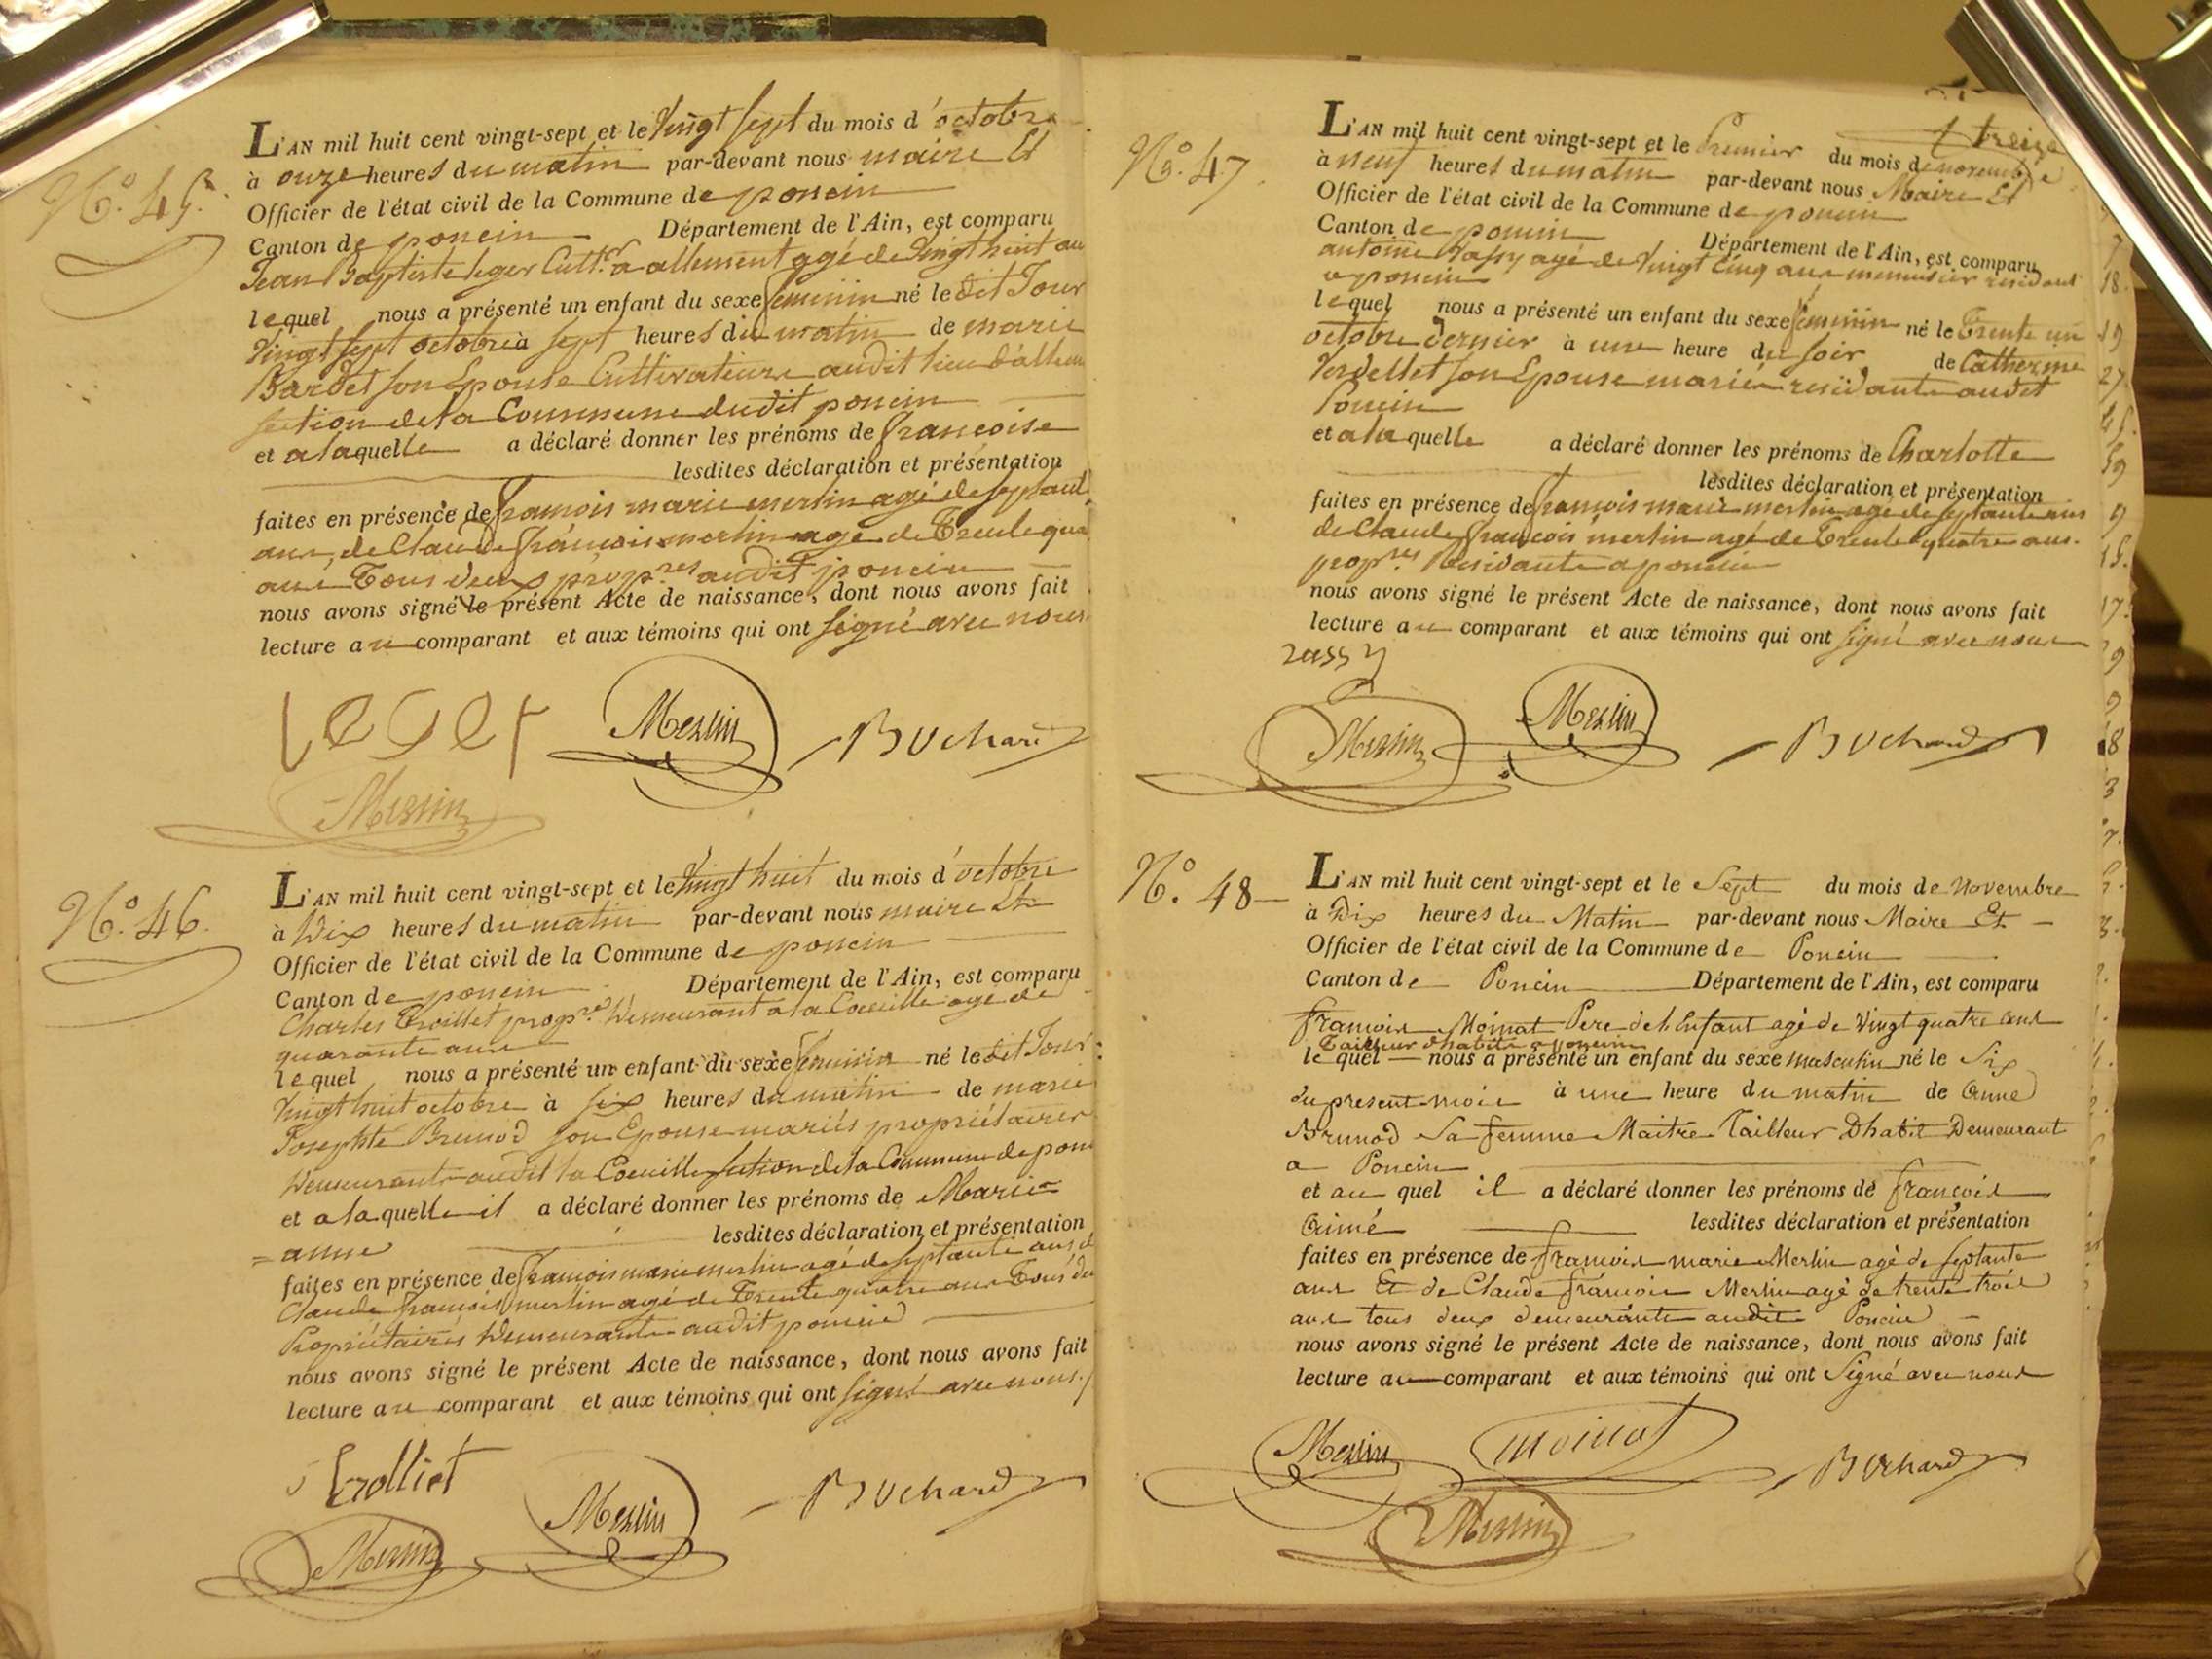 N.º 45.
L'AN mil huit cent vingt-sept et le Vingt sept du mois d'octobre
à onze heures du matin par-devant nous maire Et
Officier de l'état civil de la Commune de poncin
Canton de poncin Département de l'Ain, est comparu
Jean Baptiste leger Cult.r a allement agé de Vingt huit an
lequel nous a présenté un enfant du sexe feminin né le dit Jour
Vingt sept octobre à sept heures du matin de marie
Bardet son Epouse Cultivateurs audit lieu d'allem
section de la Commune dudit poncin
et a laquelle a déclaré donner les prénoms de françoise
lesdites déclaration et présentation
faites en présence de françois marie merlin agé de septant
ans, de Claude françois merlin agé de Trente qua
ans Tous deux prop.res audit poncin
nous avons signé le présent Acte de naissance, dont nous avons fait
lecture au comparant et aux témoins qui ont signé avec nous.
leger Merlin Buchard
Merlin
N.º 46.
L'AN mil huit cent vingt-sept et le Vingt huit du mois d'octobre
à Dix heures du matin par-devant nous maire Et
Officier de l'état civil de la Commune de poncin
Canton de poncin Département de l'Ain, est comparu
Charles Trolliet prop.re Demeurant a la Coeuille age de
quarante ans
lequel nous a présenté un enfant du sexe feminin né le dit Jour
Vingt huit octobre à six heures du matin de marie
Josephte Brunod son Epouse mariés propriétaires
Demeurants audit la Coeuille section de la Commune de ponc
et a laquelle il a déclaré donner les prénoms de Marie
= anne lesdites déclaration et présentation
faites en présence de françois marie merlin agé de septante ans, d
Claude françois merlin agé de Trente quatre ans Tous de
Propriétaires Demeurants audit poncin
nous avons signé le présent Acte de naissance, dont nous avons fait
lecture au comparant et aux témoins qui ont signé avec nous.
Trolliet Merlin Buchard
Merlin
treize
N.º 47.
L'AN mil huit cent vingt-sept et le Premier du mois de novembre
à neuf heures du matin par-devant nous Maire Et
Officier de l'état civil de la Commune de poncin
Canton de poncin Département de l'Ain, est comparu
antoine agé de Vingt Cinq ans menuisier residant
a poncin
lequel nous a présenté un enfant du sexe feminin né le Trente un
octobre dernier à une heure du soir de Catherine
Verdellet son Epouse mariés residants audit
Poncin
et a laquelle a déclaré donner les prénoms de Charlotte
lesdites déclaration et présentation
faites en présence de françois marie merlin agé de septante ans
de Claude françois merlin agé de Trente quatre ans.
prop.res Residants a poncin
nous avons signé le présent Acte de naissance, dont nous avons fait
lecture au comparant et aux témoins qui ont signé avec nous
Merlin Merlin Buchard
N.º 48
L'AN mil huit cent vingt-sept et le Sept du mois de Novembre
à Dix heures du Matin par-devant nous Maire Et
Officier de l'état civil de la Commune de Poncin
Canton de Poncin Département de l'Ain, est comparu
françois Moinat Pere de l'Enfant agé de Vingt quatre ans
Tailleur d'habits a poncin
lequel nous a présenté un enfant du sexe masculin né le Six
du present mois à une heure du matin de Anne
Brunod Sa femme Maitre Tailleur Dhabit Demeurant
a Poncin
et au quel il a déclaré donner les prénoms de françois
Aimé lesdites déclaration et présentation
faites en présence de françois marie Merlin agé de septante
ans Et de Claude françois Merlin agé de trente trois
ans tous deux demeurants audit Poncin
nous avons signé le présent Acte de naissance, dont nous avons fait
lecture au comparant et aux témoins qui ont Signé avec nous
Merlin moinat Buchard
Merlin